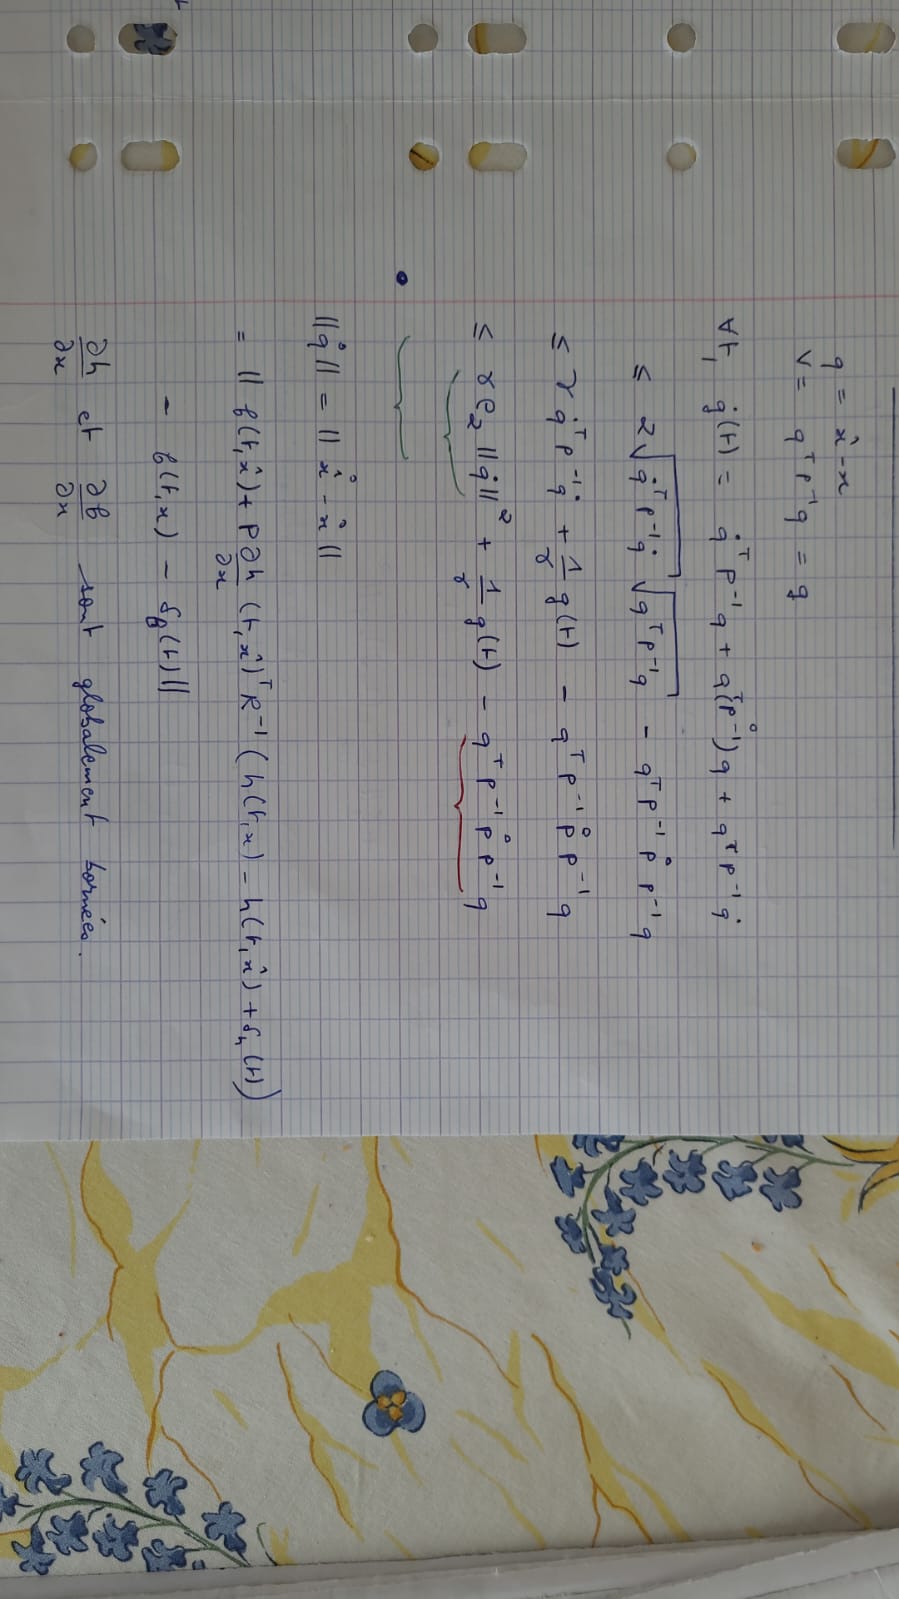 q = x̂ - x
V = qᵀP⁻¹q = g
∀t, ġ(t) = q̇ᵀP⁻¹q + qᵀ(P⁻¹)˚q + qᵀP⁻¹q̇
≤ 2√(q̇ᵀP⁻¹q̇) √(qᵀP⁻¹q) - qᵀP⁻¹P̊P⁻¹q
≤ γ q̇ᵀP⁻¹q̇ + 1/γ g(t) - qᵀP⁻¹P̊P⁻¹q
≤ γ ρ₂ ||q̇||² + 1/γ g(t) - qᵀP⁻¹P̊P⁻¹q
||q̊|| = ||x̂˚ - x̊||
= || f(t,x̂) + P ∂h/∂x (t,x̂)ᵀ R⁻¹ (h(t,x) - h(t,x̂) + δₕ(t))
- f(t,x) - δ_f(t) ||
∂h/∂x et ∂f/∂x sont globalement bornées.